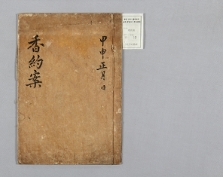 甲申正月日
香約案